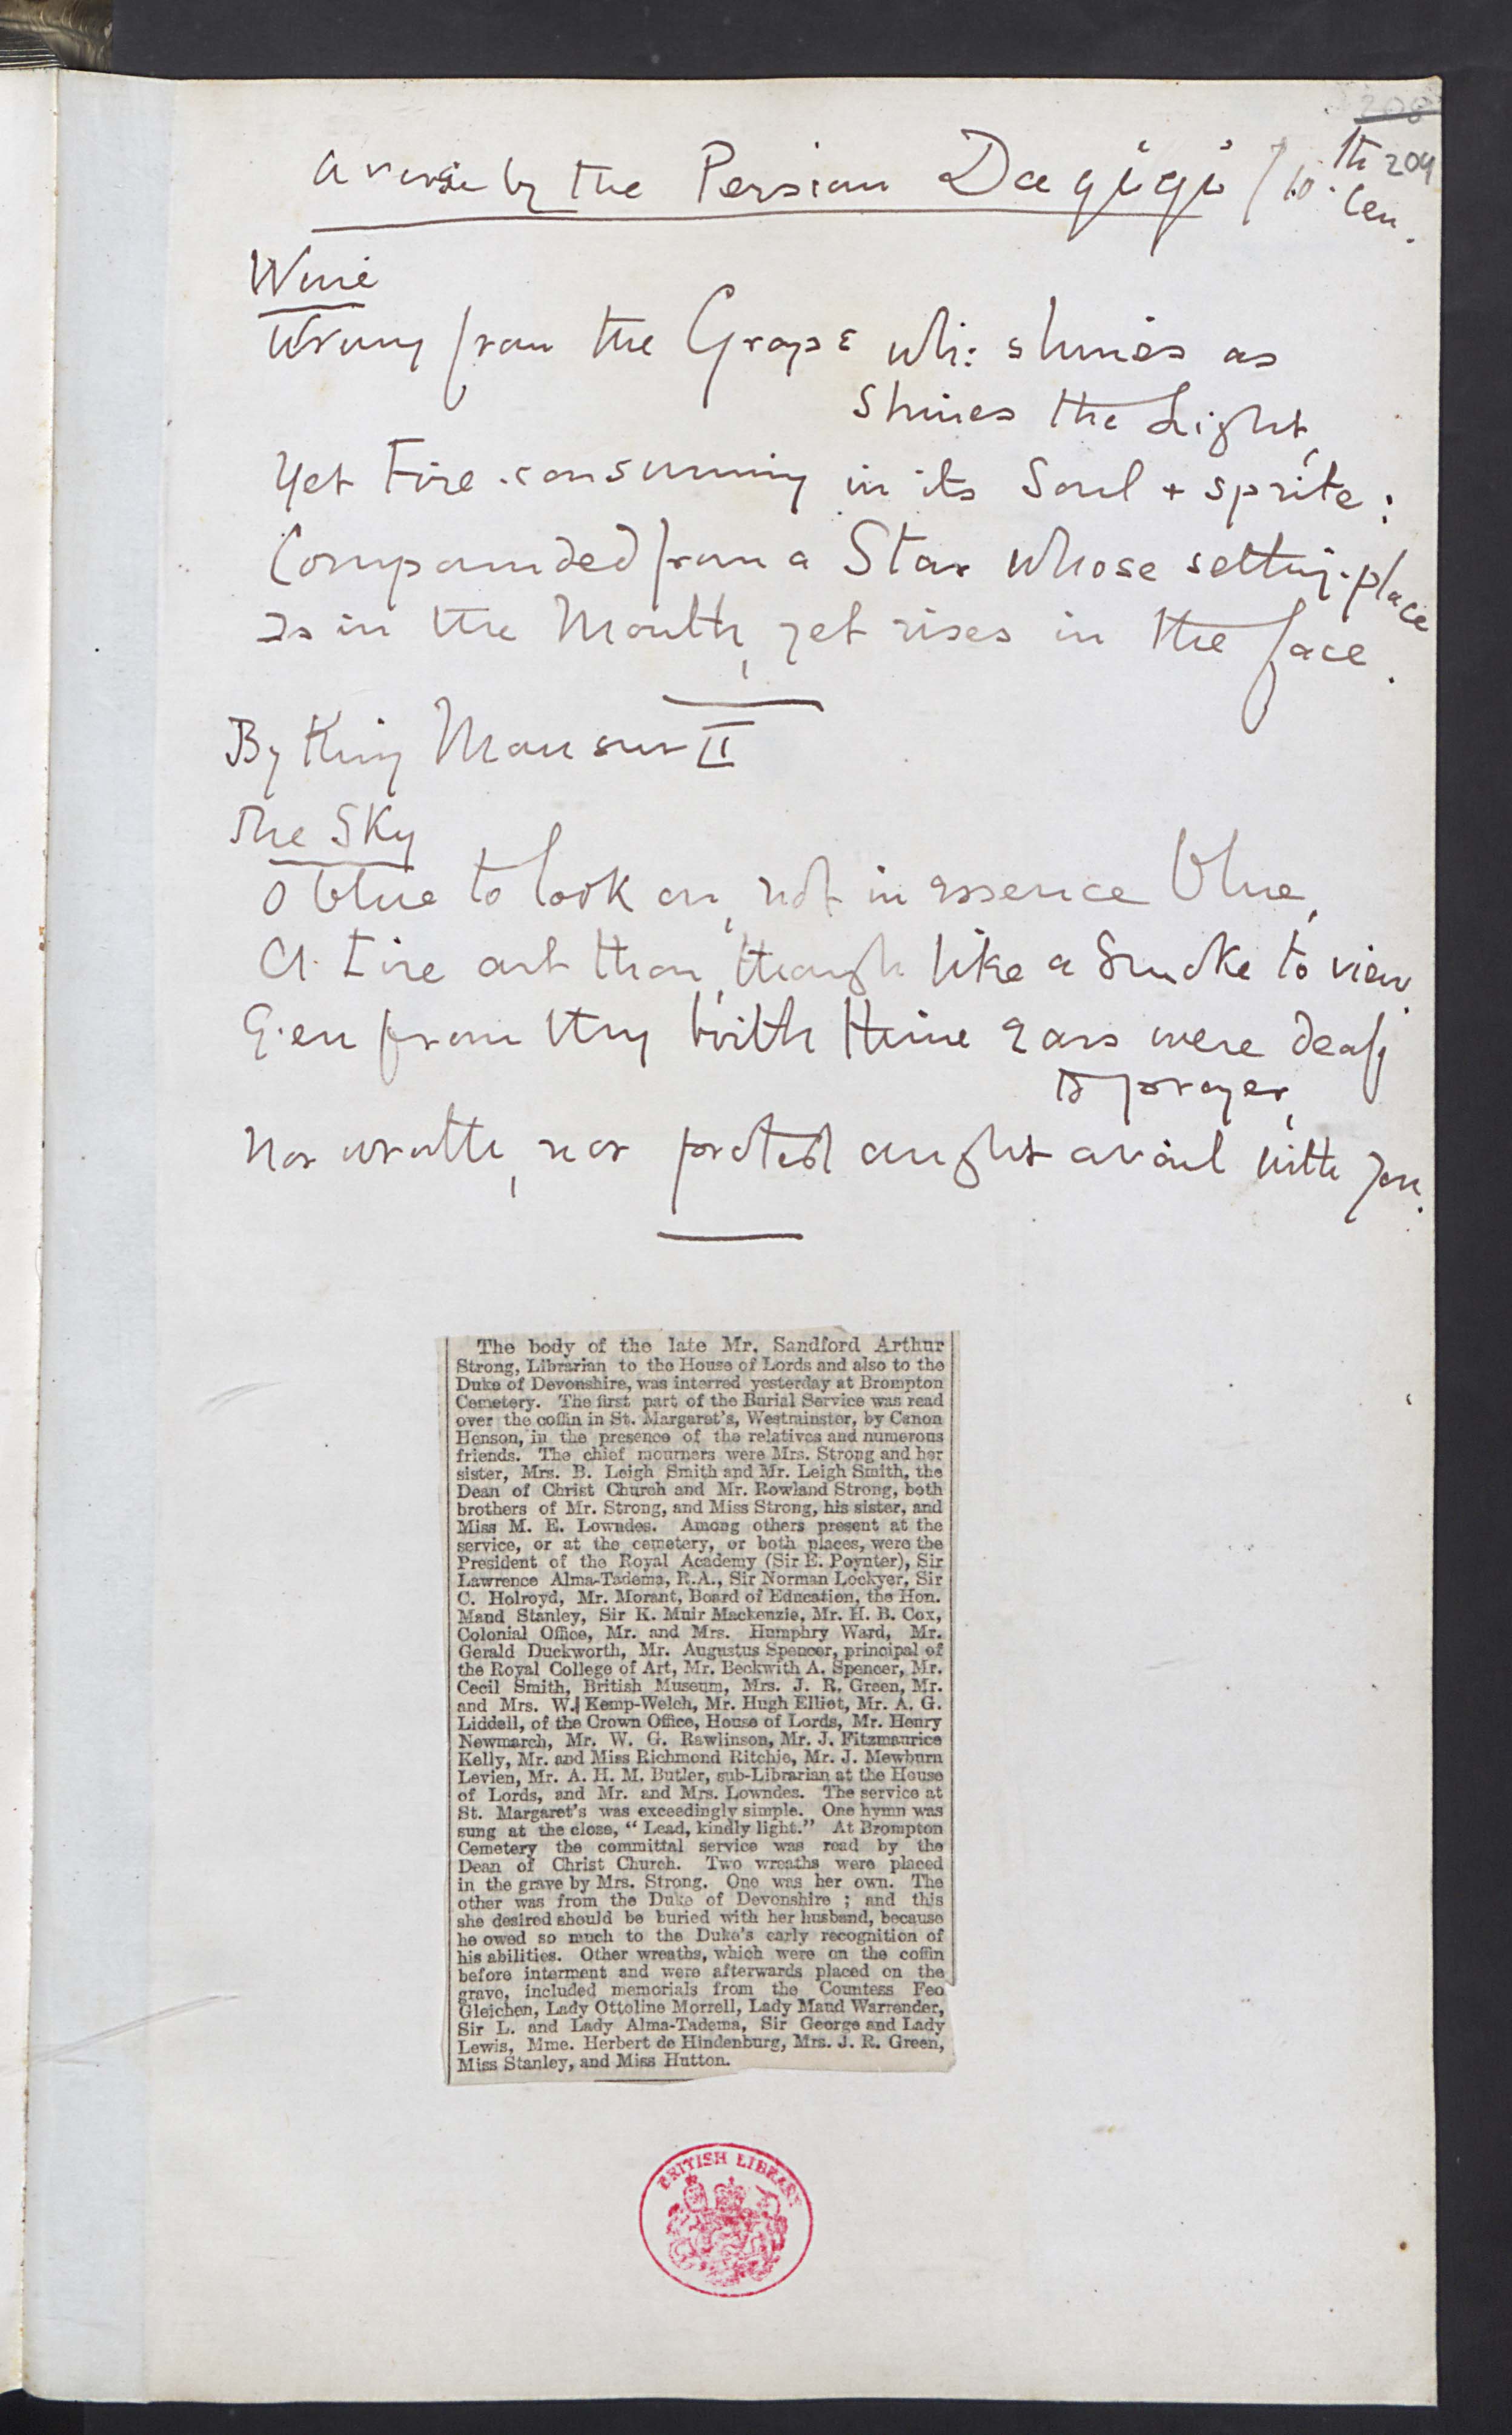 208
204
A verse by the Persian Daqiqi / 10.th Cen.
Wine
Wrung from the Grape whi: shines as
shines the Light,
Yet Fire-consuming in its Soul + sprite:
Compounded from a Star whose setting-place
Is in the Mouth, yet rises in the face.
By King Mansur II
The Sky
O blue to look on, not in essence blue,
A Fire art thou, though like a Smoke to view.
E'en from thy birth thine ears were deaf
to prayer,
Nor wrath, nor protest aught avail with you.
The body of the late Mr. Sandford Arthur
Strong, Librarian to the House of Lords and also to the
Duke of Devonshire, was interred yesterday at Brompton
Cemetery. The first part of the Burial Service was read
over the coffin in St. Margaret's, Westminster, by Canon
Henson, in the presence of the relatives and numerous
friends. The chief mourners were Mrs. Strong and her
sister, Mrs. B. Leigh Smith and Mr. Leigh Smith, the
Dean of Christ Church and Mr. Rowland Strong, both
brothers of Mr. Strong, and Miss Strong, his sister, and
Miss M. E. Lowndes. Among others present at the
service, or at the cemetery, or both places, were the
President of the Royal Academy (Sir E. Poynter), Sir
Lawrence Alma-Tadema, R.A., Sir Norman Lockyer, Sir
C. Holroyd, Mr. Morant, Board of Education, the Hon.
Maud Stanley, Sir K. Muir Mackenzie, Mr. H. B. Cox,
Colonial Office, Mr. and Mrs. Humphry Ward, Mr.
Gerald Duckworth, Mr. Augustus Spencer, principal of
the Royal College of Art, Mr. Beckwith A. Spencer, Mr.
Cecil Smith, British Museum, Mrs. J. R. Green, Mr.
and Mrs. W. Kemp-Welch, Mr. Hugh Elliot, Mr. A. G.
Liddell, of the Crown Office, House of Lords, Mr. Henry
Newmarch, Mr. W. G. Rawlinson, Mr. J. Fitzmaurice
Kelly, Mr. and Miss Richmond Ritchie, Mr. J. Mewburn
Levien, Mr. A. H. M. Butler, sub-Librarian at the House
of Lords, and Mr. and Mrs. Lowndes. The service at
St. Margaret's was exceedingly simple. One hymn was
sung at the close, "Lead, kindly light." At Brompton
Cemetery the committal service was read by the
Dean of Christ Church. Two wreaths were placed
in the grave by Mrs. Strong. One was her own. The
other was from the Duke of Devonshire ; and this
she desired should be buried with her husband, because
he owed so much to the Duke's early recognition of
his abilities. Other wreaths, which were on the coffin
before interment and were afterwards placed on the
grave, included memorials from the Countess Feo
Gleichen, Lady Ottoline Morrell, Lady Maud Warrender,
Sir L. and Lady Alma-Tadema, Sir George and Lady
Lewis, Mme. Herbert de Hindenburg, Mrs. J. R. Green,
Miss Stanley, and Miss Hutton.
BRITISH LIBRARY